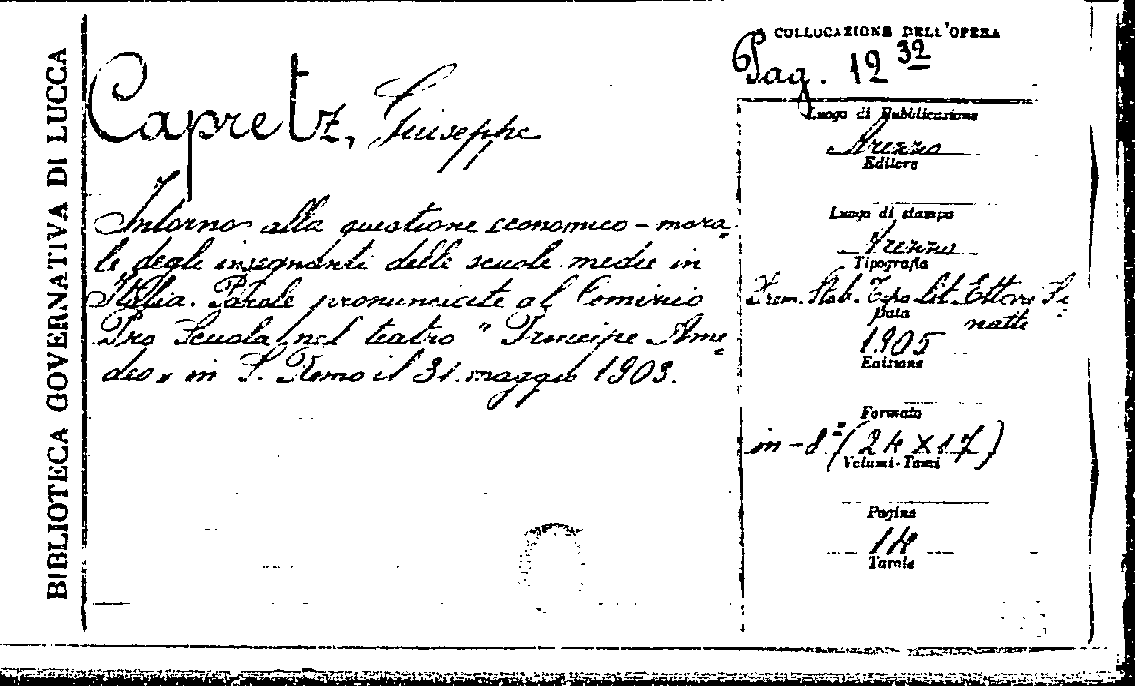 BIBLIOTECA GOVERNATIVA DI LUCCA
Capretz, Giuseppe
Intorno alla questione economico-mora=
le degli insegnanti delle scuole medie in
Italia. Parole pronunciate al Comizio
Pro Scuola nel teatro " Principe Ame=
deo " in S. Remo il 31 maggio 1903.
COLLOCAZIONE DELL'OPERA
Pag. 12 32
Luogo di Pubblicazione
Arezzo
Editore
Luogo di stampa
Arezzo
Tipografia
Prem. Stab. Tipo Lit. Ettore Si=
natti
Data
1905
Edizione
Formato
in-8° (24 x 17)
Volumi-Tomi
Pagine
14
Tavole